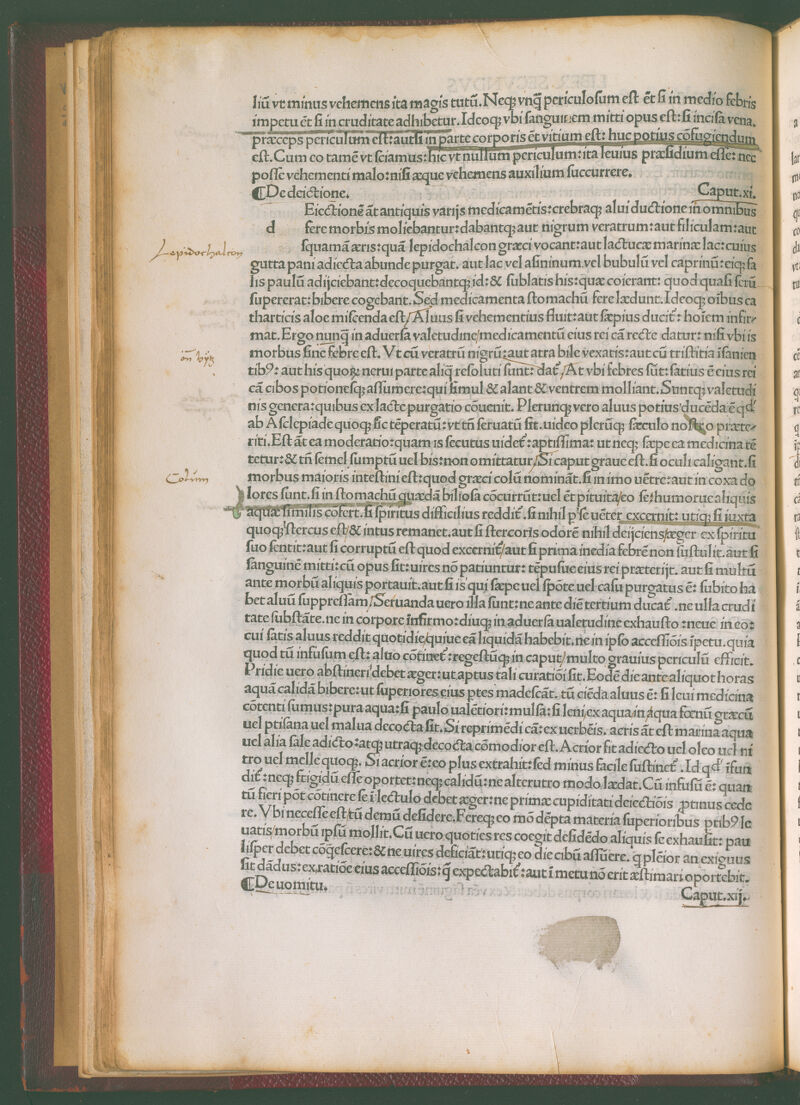 liū vt minus vehemens ita magis tutū. Neqʒ vnq̄ periculosum est ēt si in medio febris
impetu ēt si in cruditate adhibetur. Ideoqʒ vbi sanguinem mitti opus est: si incisa vena.
præceps periculum est: aut si in parte corporis ēt vitium est: huc potius cōfugiendum
est. Cum eo tamē vt sciamus: hic vt nullum periculum: ita leuius præsidium esse: nec
posse vehementi malo: nisi æque vehemens auxilium succurrere.
¶De deiectione. Caput.xi.
Eiectionē āt antiquis varijs medicamētis: crebraqʒ alui ductione in omnibus
d fere morbis moliebantur: dabantqʒ aut nigrum veratrum: aut filiculam: aut
Lepidochalcon
squamā æris: quā lepidochalcon græci vocant: aut lactucæ marinæ lac: cuius
gutta pani adiecta abunde purgat. aut lac vel asininum. vel bubulū vel caprinū: eiqʒ sa
lis paulū adijciebant: decoquebantqʒ id: & sublatis his: quæ coierant: quod quasi serū
supererat: bibere cogebant. Sed medicamenta stomachū fere lædunt. Ideoqʒ oībus ca
tharticis aloe miscenda est/Aluus si vehementius fluit: aut sæpius ducit̄: hoīem infir⸗
mat. Ergo nunq̄ in aduersa valetudine/medicamentū eius rei cā recte datur: nisi vbi is
morbus sine febre est. Vt cū veratrū nigrū: aut atra bile vexatis: aut cū tristitia īsanien
tibꝰ: aut his quoꝝ nerui parte aliq̄ resoluti sunt: dat̄/At vbi febres sūt: satius ē eius rei
cā cibos potionesqʒ assumere: qui simul & alant & ventrem molliant. Suntqʒ valetudi
nis genera: quibus ex lacte purgatio cōuenit. Plerunqʒ vero aluus potius ducēda ē qd̄
ab Asclepiade quoqʒ sic tēperatū: vt tn̄ seruatū sit. uideo plerūqʒ sæculo nostro præte⸗
riti. Est āt ea moderatio: quam is secutus uidet̄: aptissima: ut neqʒ sæpe ea medicina tē
tetur: & tn̄ semel sumptū uel bis: non omittatur/Si caput graue est. si oculi caligant. si
Colum
morbus maioris intestini est: quod græci colū nomināt. si in imo uētre: aut in coxa do
lores sunt. si in stomachū quædā biliosa cōcurrūt: uel ēt pituita/eo se: humorue aliquis
aquæ similis cōfert. si spiritus difficilius reddit̄. si nihil p se uēter excernit: utiqʒ si iuxta
quoqʒ stercus est/& intus remanet. aut si stercoris odorē nihil deijciens/æger ex spiritu
suo sentit: aut si corruptū est quod excernit̄/aut si prima inedia febrē non sustulit. aut si
sanguinē mitti: cū opus sit: uires nō patiuntur: tēpusue eius rei præterijt. aut si multū
ante morbū aliquis portauit. aut si is qui sæpe uel spōte uel casu purgatus ē: subito ha
bet aluū suppressam/Seruanda uero illa sunt: ne ante diē tertium ducat̄. ne ulla crudi
tate subs­tāte. ne in corpore infirmo: diuqʒ in aduersa ualetudine exhausto: neue in eo:
cui satis aluus reddit quotidie, quiue eā liquidā habebit. ne in ipso accessiōis īpetu. quia
quod tū infusum est: aluo cōtinet̄: regestūqʒ in caput/multo grauius periculū efficit.
Pridie uero abstineri debet æger: ut aptus tali curatiōi sit. Eodē die ante aliquot horas
aquā calidā bibere: ut superiores eius ptes madescāt. tū ciēda aluus ē: si leui medicina
cōtenti sumus: pura aqua: si paulo ualētiori: mulsa: si leni, ex aqua in qua fœnū græcū
uel ptisana uel malua decocta sit. Si reprimēdi cā: ex uerbēis. acris āt est marina aqua
uel alia sale adicto: atqʒ utraqʒ decocta cōmodior est. Acrior fit adiecto uel oleo uel ni
tro uel melle quoqʒ. Si acrior ē: eo plus extrahit: sed minus facile sustinet̄. Id qd̄ īfun
dit̄: neqʒ frigidū esse oportet: neqʒ calidū: ne alterutro modo lædat. Cū infusū ē: quan
tū fieri pōt cōtinere se ī lectulo debet æger: ne primæ cupiditati deiectiōis protinus cede
re. Vbi necesse est/tū demū desidere. Fereqʒ eo mō dēpta materia superioribus ptibꝰ le
uatis/morbū ipsū mollit. Cū uero quoties res coegit desidēdo aliquis se exhausit: pau
lisper debet cōq̄escere: & ne uires deficiāt: utiqʒ eo die cibū assūere. q plēior an exiguus
sit dādus: ex ratiōe eius accessiōis: q̄ expectabit̄: aut ī metu nō erit æstimari oportebit.
¶De uomitu. Caput.xij.